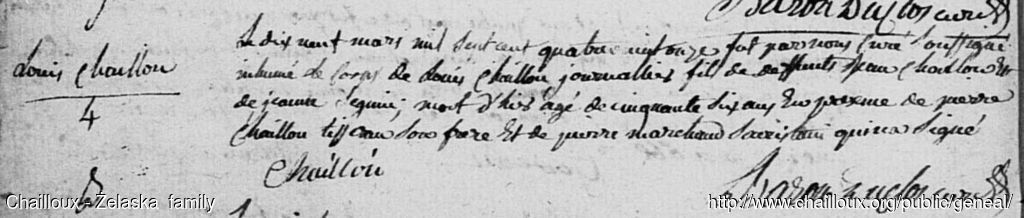 Baron Duclos curé
Louis Chaillou
4
Le dix neuf mars mil sept cent quatre vint onze fut par nous Curé Soussigné
inhumé le Corps de Louis Chaillou journallier fils de deffunts Jean Chaillou Et
de jeanne Seguin; mort d'hier agé de cinquante six ans En presence de pierre
Chaillou tisseran Son frere Et de pierre marchand Sacristain qui na Signé
Chaillou
Baron Duclos curé
Chailloux - Żelaska family
http://www.chailloux.org/public/geneal/